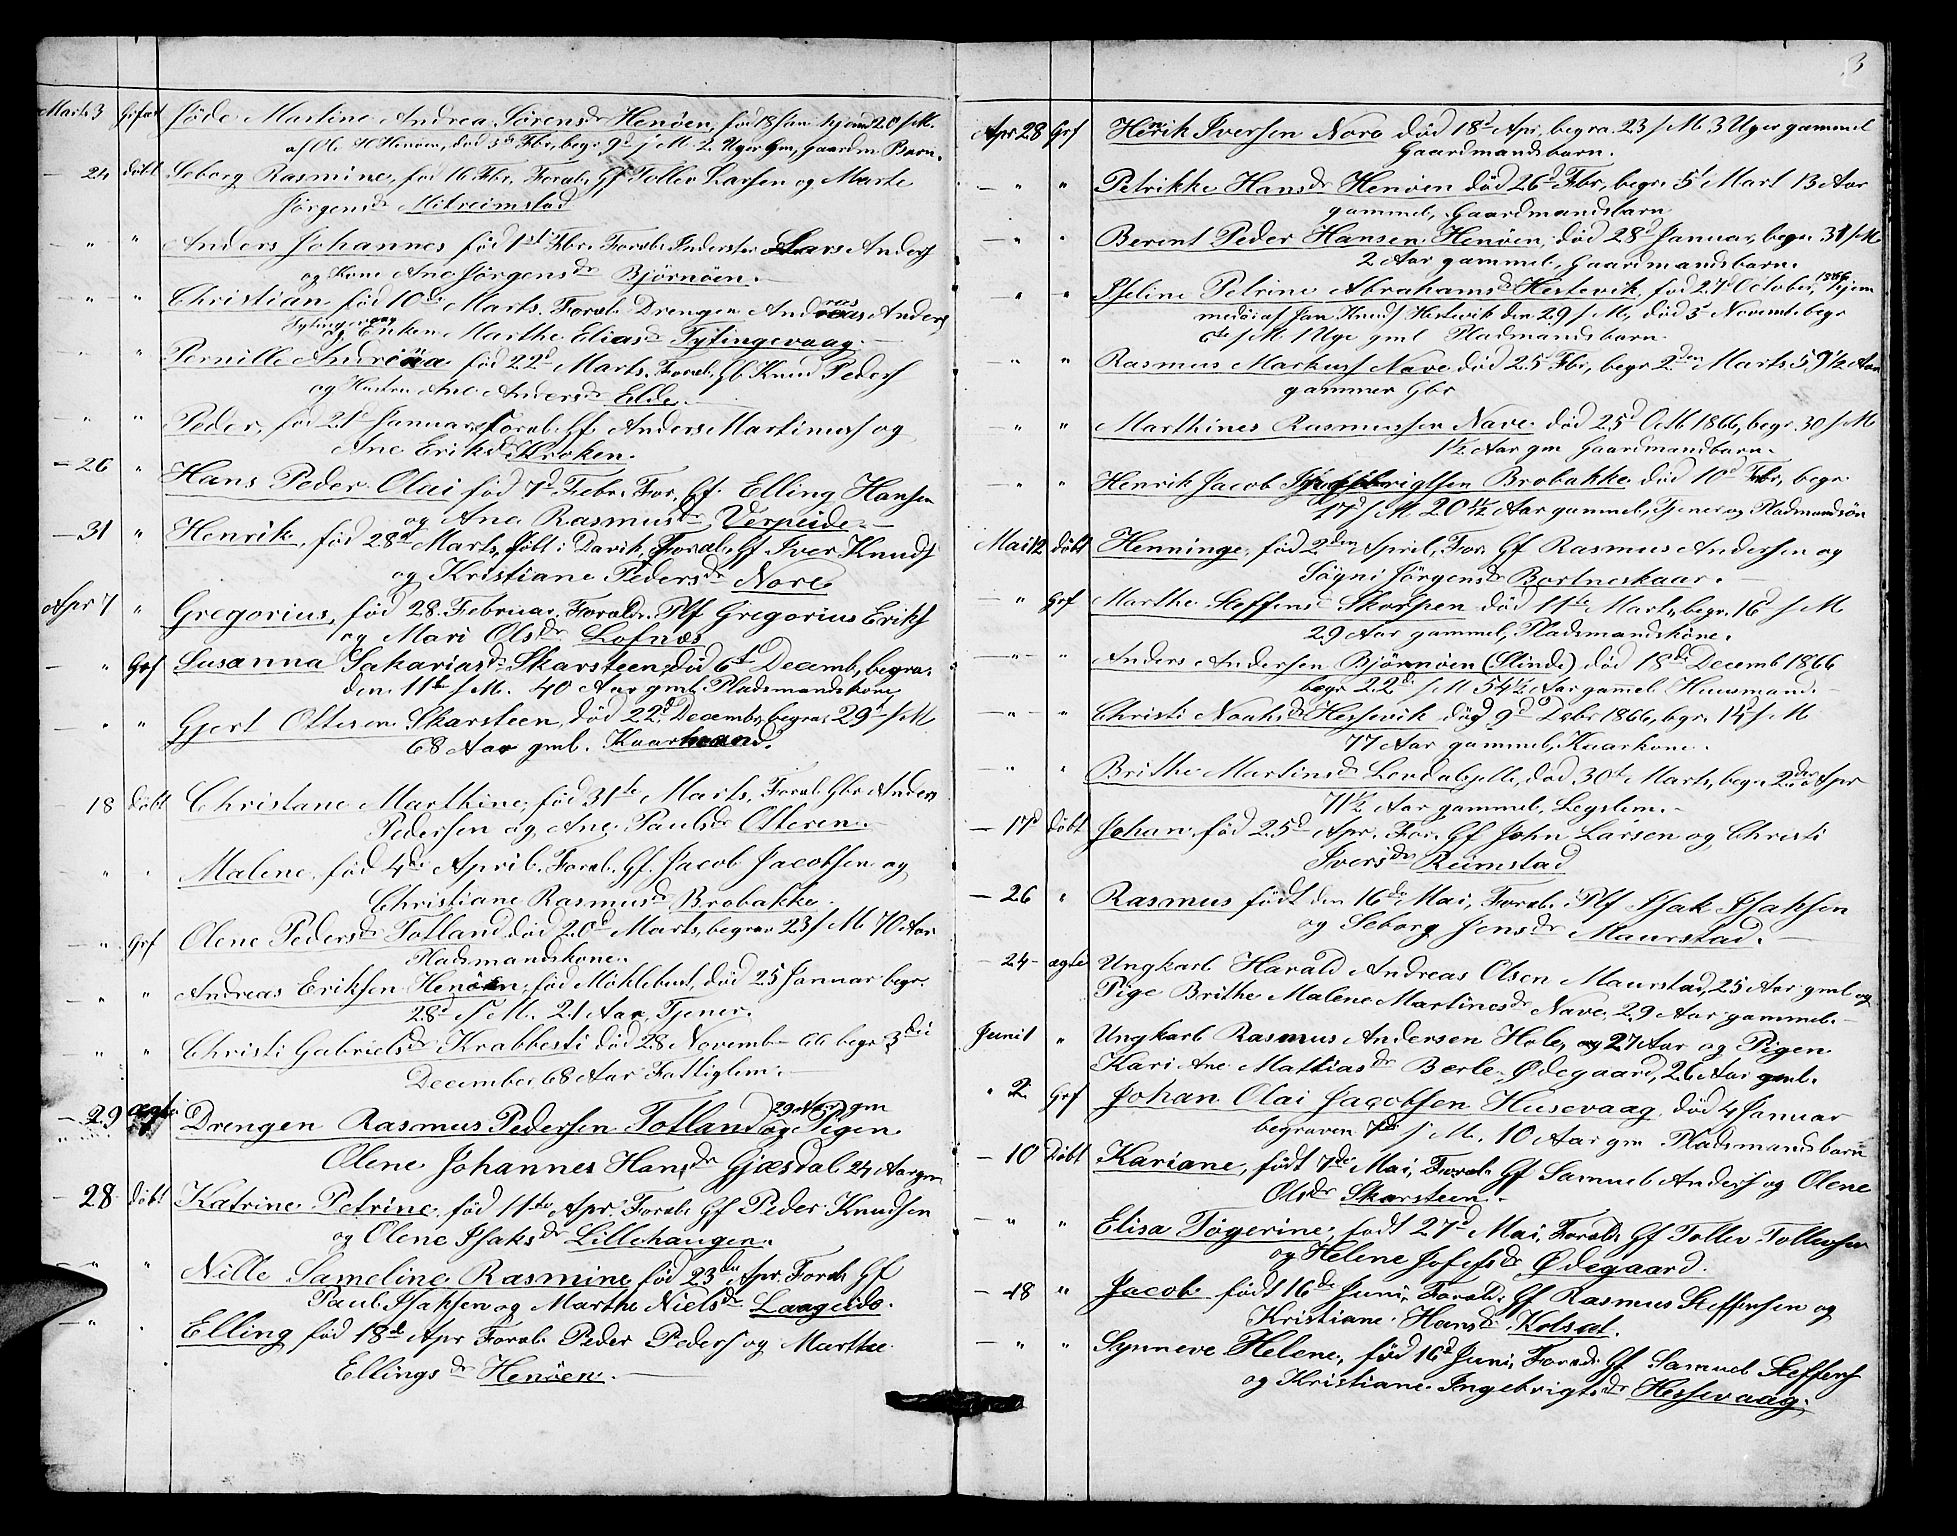 Marts 3 Grfæst føde Martine Andrea Sørensdr Henøen, fød 18 Jan. hjemd 20 s. M.
af Ole H Henøen, død 3d Fbr, begr. 9d s. M. 2 Uger gm, Gaardm. Barn.
— 24 døbt Seborg Rasmine, fød 16 Fbr. Foræl. Gf Tollev Larsen og Marte
Jørgensdr Mitreimstad
— " " Anders Johannes fød 1ste Fbr. Foræl. Inderster Lars Anders
og Kone Ane Jørgensdr Bjørnøen.
— " " Christian fød 10de Marts. Foræl. Drengen Andreas Anders
Tytingevaag og Enken Marthe Eliasdr Tytingevaag.
" " Pernille Andreaa fød 22d Marts. Foræl. Gb Knud Peders
og Hustru Ane Andersdr Elde.
" " Peder, fød 21d Januar, Foræl. Gf. Anders Martinus og
Ane Eriksdr Kroken.
— 26 " Hans Peder Olai fød 7d Febr. For. Gf. Elling Hansen
og Ane Rasmusdr Verpeide.
— 31 " Henrik, fød 28d Marts, døbt i Davik, Foræl. Gf Iver Knuds
og Kristiane Pedersdr Nore
Apr 7 " Gregorius, fød 28. Februar, Foræld. Plf Gregorius Eriks
og Mari Olsdr Lofnæs
— " Grf Susanna Sakariasdr Skarsteen, død 6d Decemb, begra.
den 11te s. M. 40 Aar gml. Pladsmandskone,
" " Gjert Ottesen Skarsteen, død 22d Decemb, begrav 29d s. M
68 Aar gml. Kaarmand.
18 Døbt Christane Marthine, fød 31te Marts, Foræl. Gbr Anders
Pedersen og Ane Paulsdr Otteren.
" " Malene, fød 4de April. Foræl. Gf. Jacob Jacobsen og
Christiane Rasmusdr Brobakke.
— " Grf Olene Pedersdr Totland død 20d Marts, begrav 23 s. M 70 Aar
Pladsmandskone.
— " " Andreas Eriksen Henøen, fød Møklebust, død 25 Januar begr.
28d s. M. 21 Aar, Tjener.
" " Christi Gabrielsdr Krabbesti død 28 Novemb 66 begr 3die
December 68 Aar Fattiglem.
— 29 ægte Drengen Rasmus Pedersen Totland 29 Aar gm og Pigen
Olene Johannes Hansdr Gjæsdal 24 Aar gm
— 28 døbt Katrine Petrine, fød 11te Apr. Foræl. Gf Peder Knudsen
og Olene Isaksdr Lillehaugen.
— " " Nille Sameline Rasmine fød 23de Apr. Foræl. Gf
Paul Isaksen og Marthe Nielsdr Langeide.
— " " Elling fød 18de Apr Foræl. Peder Peders og Marthe
Ellingsdr Henøen.
3
Apr 28 Grf Henrik Iversen Nore død 18d Apr, begra. 23 s M 3 Uger gammel
Gaardmandsbarn.
— " " Petrikke Hansdr Henøen død 26d Fbr, begr. 5d Mart 13 Aar
gammel, Gaardmandsbarn
— " " Berent Peder Hansen Henøen, død 28d Januar, begr. 31 s M
2 Aar gammel, Gaardmandsbarn.
— " " Iseline Petrine Abrahamsdr Hestevik, fød 27d October, 1866 Hjem
medøi af Jan Knuds Hestevik den 29 s M, død 5d Novemb begr
s M. 1 Uge gml Pladmandsbarn.
— " " Rasmus Markus Nave død 25d Fbr, begr 2den Marts 59 1/2 Aar
gammer Gbr
— " " Marthines Rasmussen Nave død 25d Octb 1866, begr. 30 s M
1 1/2 Aar gm Gaardmandbarn.
— " " Henrik Jacob Ingebrigtsen Brobakke død 10d Fbr, begr
17d s M 20 1/2 Aar gammel, Tjener og Pladmandsøn
Mai 12 døbt Henninge, fød 2den April, For. Gf Rasmus Andersen og
Søgni Jørgensdr Bortneskaar.
— " Grf Marthe Steffensd Skorpen død 11te Mart, begr. 16d s M
29 Aar gammel, Pladsmandskone.
— " " Anders Andersen Bjørnøen (Slinde) død 18de Decemb 1866
begr 22d s M 54 1/2 Aar gamel. Huusmand.
— " " Christi Noahsdr Hessevik død 9d Debr 1866, begr. 14d s M
77 Aar gammel, Kaarkone.
— " " Brithe Martinsdr Levdalgjelle, død 30te Mart, begr. 2den Apr
71 1/2 Aar gammel, Legslem.
— 17d døbt Johan, fød 25d Apr. For. Gf John Larsen og Christi
Iversdr Reimstad
— 26 " Rasmus født den 16de Mai, Foræl. Plf Isak Isaksen
og Seborg Jensdr Maurstad.
— 24 — ægte Ungkarl Harald Andreas Olsen Maurstad, 25 Aar gml og
Pige Brithe Malene Martinesdr Nave, 29 Aar gammel.
Juni 1 " Ungkarl Rasmus Andersen Hole, 27 Aar og Pigen
Kari Ane Mathiasdr Berle, Ødegaard, 26 Aar gml.
" 2 Grf Johan Olai Jacobsen Husevaag død 4 Januar
begraven 7de s M. 10 Aar gm Pladsmandsbarn
— 10 Døbt Kariane, født 7de Mai, Foræl. Gf Samuel Anders og Olene
Olsdr Skarsteen.
— " " Elisa Tøgerine, født 27d Mai, Foræld. Gf Tollev Tollevsen
og Helene Josefsdr Ødegaard.
— 18 " Jacob født 16de Juni, Foræld. Gf Rasmus Steffensen og
Kristiane Hansdr Kolsæt.
— " " Synneve Helene, fød 16d Juni, Foræld. Gf Samuel Steffens
og Kristiane Ingebrigtsdr Hessevaag.